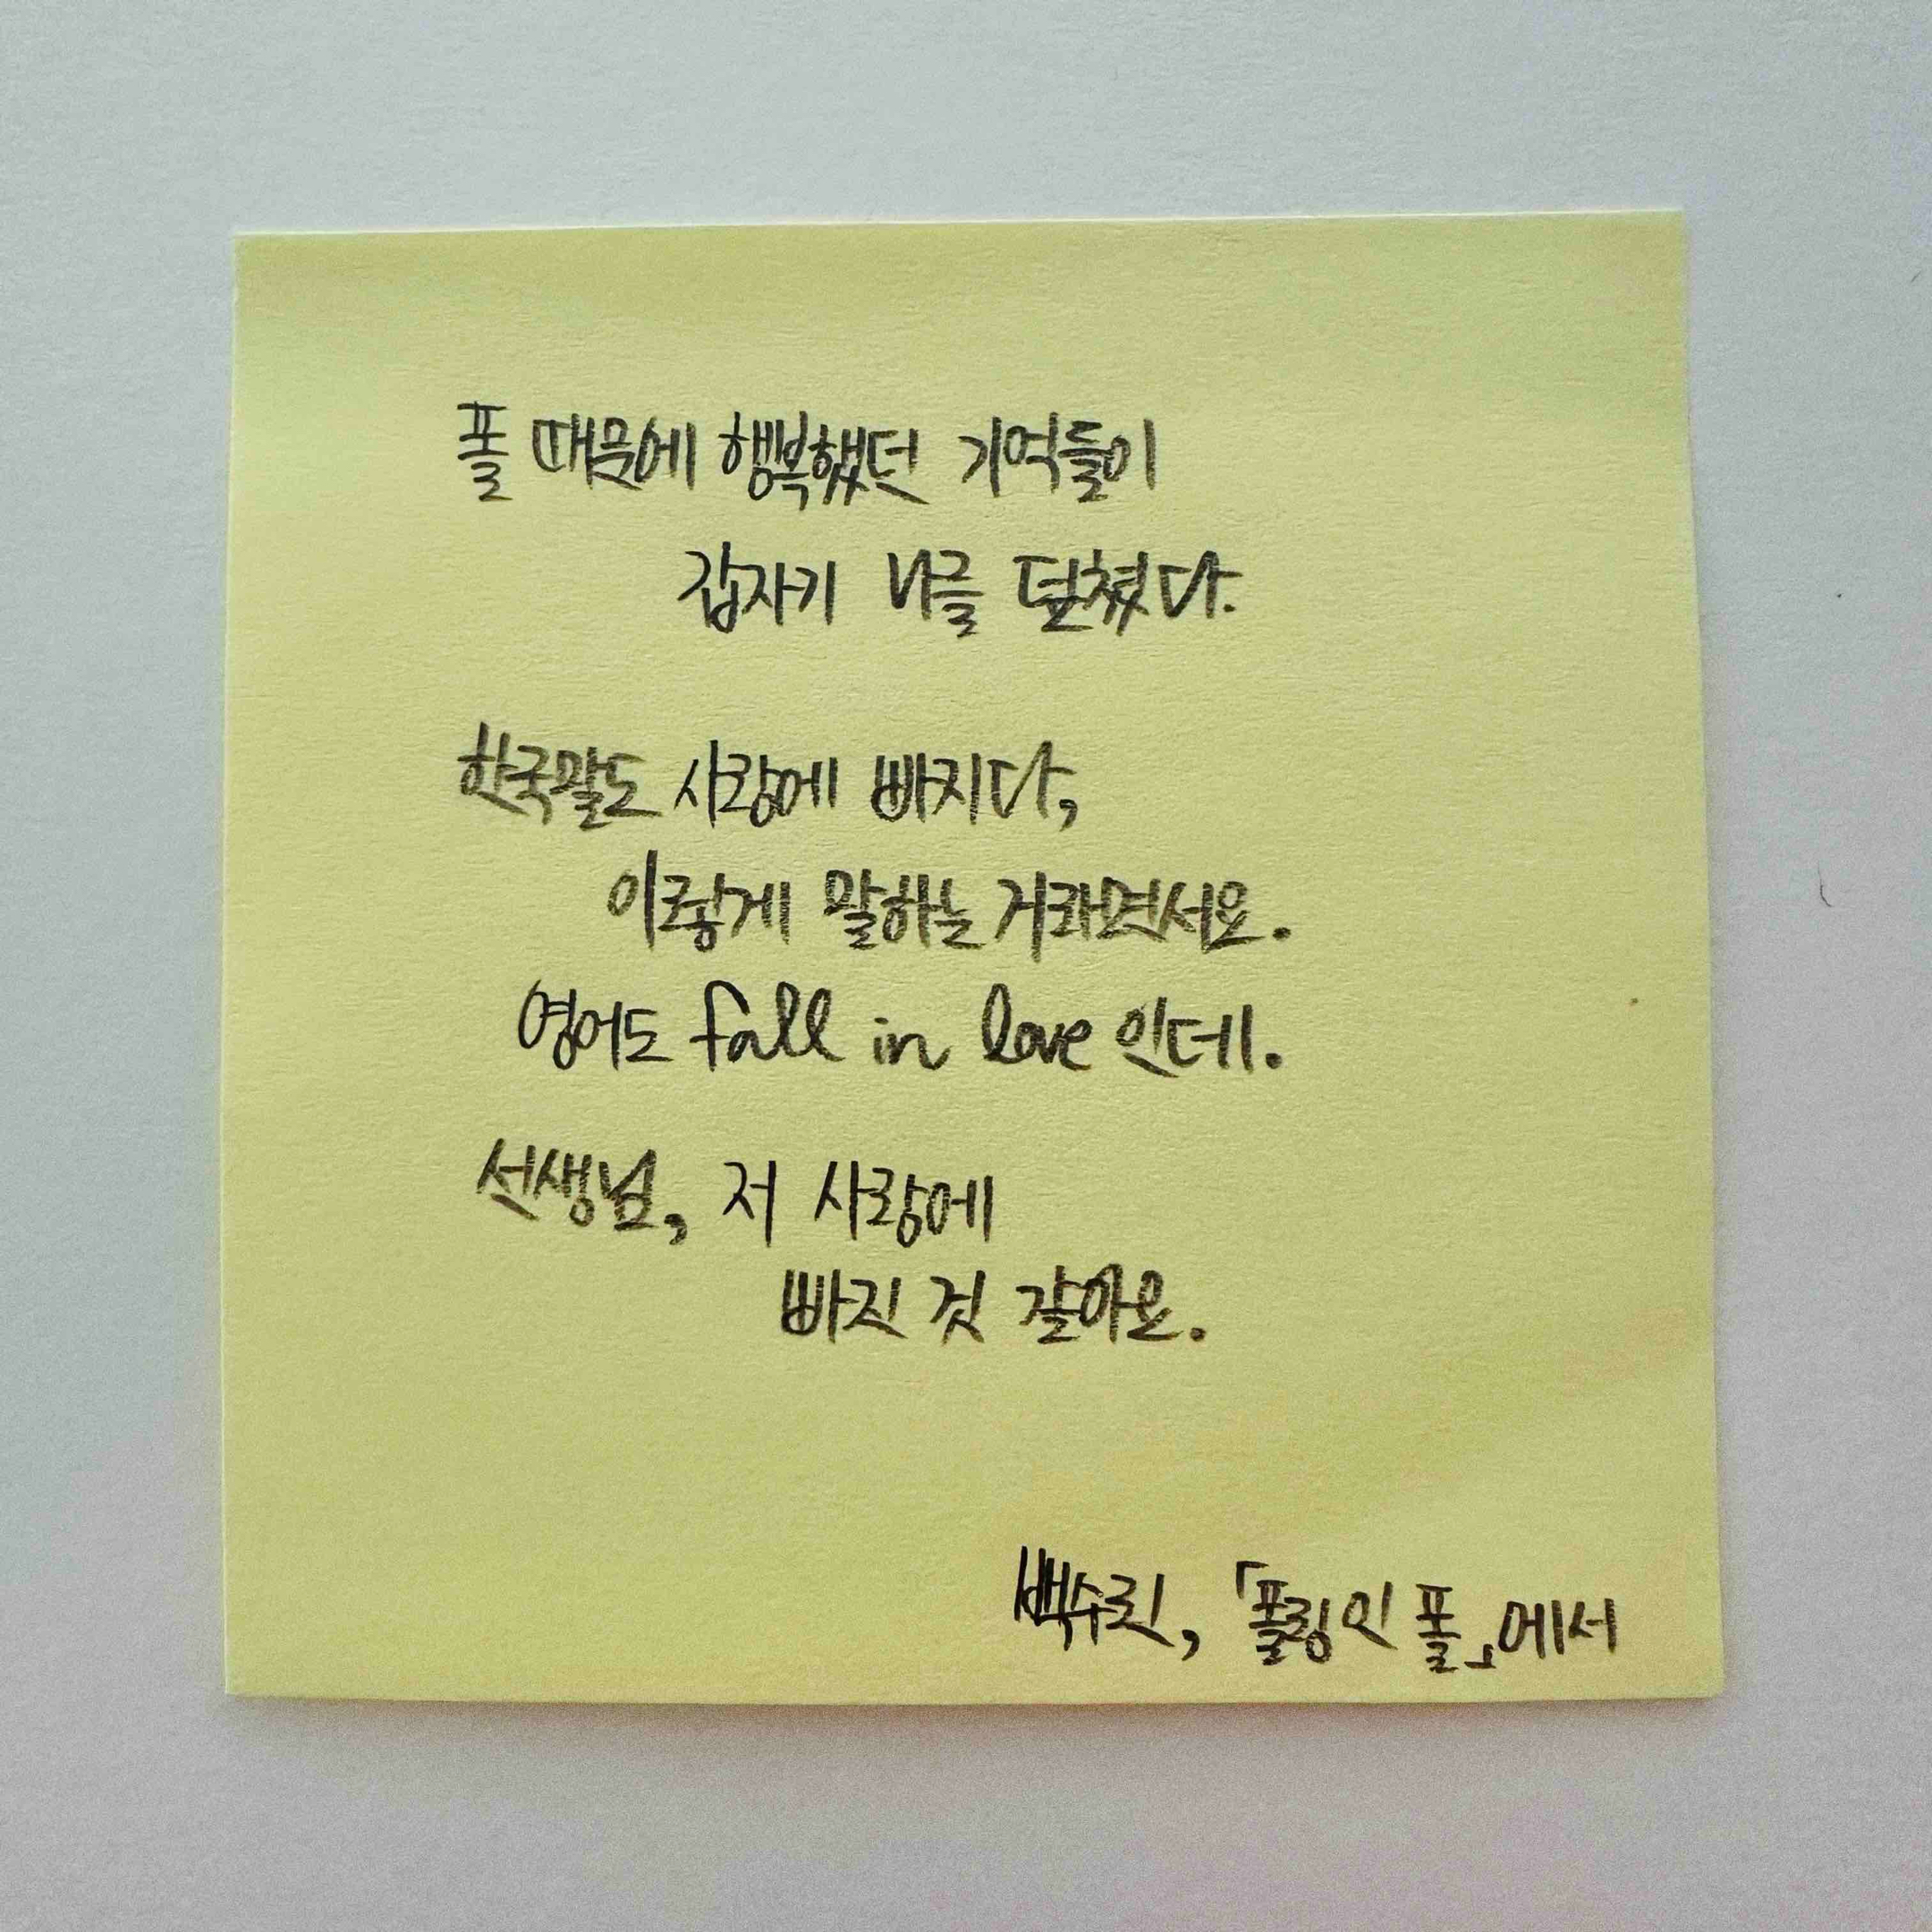 폴 때문에 행복했던 기억들이
갑자기 나를 덮쳤다.
한국말도 사랑에 빠지다,
이렇게 말하는 거라면서요.
영어도 fall in love인데.
선생님, 저 사랑에
빠진 것 같아요.
백수린, 「폴링 인 폴」에서